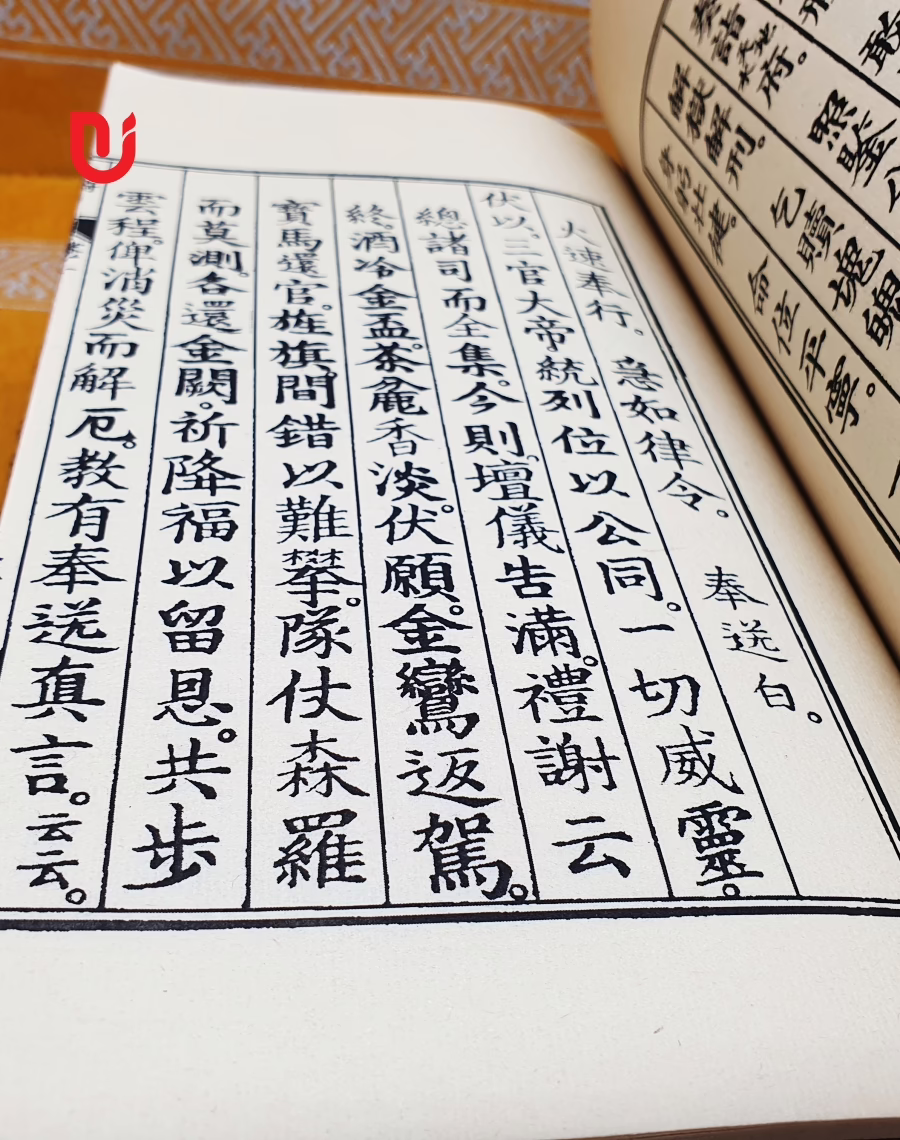 敢
照鑒公
乞贖魂魄
府。 命位平寧。
解獄解刑。
火速奉行。急如律令。 奉送白。
伏以。三官大帝統列位以公同。一切威靈。
總諸司而仝集。今則。壇儀告滿。禮謝云
終。酒冷金盃。茶龕香淡。伏願。金鸞返駕。
寶馬還官。旌旗間錯以難攀。隊仗森羅
而莫測。各還金闕。祈降福以留恩。共步
雲程。仰消災而解厄。教有奉送真言。云云。